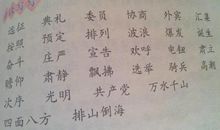 选征 典礼 委员 协商 外宾 汇集
按照 预定 排列 波浪 爆发 诞生
奋斗 庄严 宣告 欢呼 电钮 肃立
瞻仰 肃静 飘拂 选举 骑兵 高潮
次序 光明 共产党 万水千山
四面八方 排山倒海